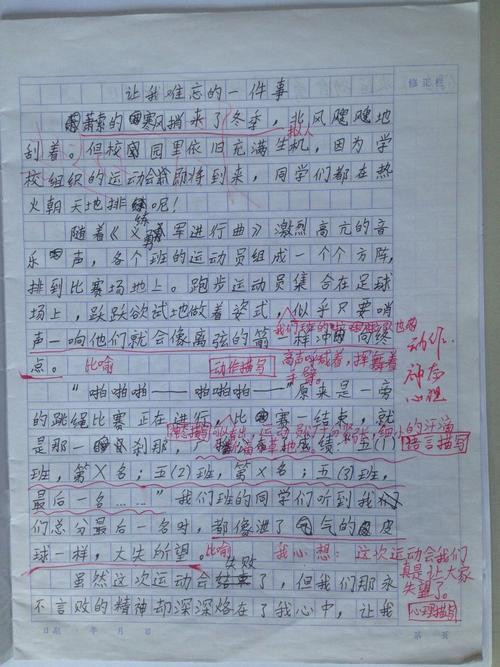 让我难忘的一件事
修正栏
萧索的寒风捎来了冬季，北风飕飕地
拟人
刮着。但校园里依旧充满生机，因为学
校组织的运动会即将到来，同学们都在热
火朝天地排练呢！
随着《义勇军进行曲》激烈高亢的音
乐声，各个班的运动员组成一个个方阵，
排到比赛场地上。跑步运动员集合在足球
场上，跃跃欲试地做着姿式，似乎只要哨
我们班的
声一响他们就会像离弦的箭一样冲向终
点。
比喻
动作描写
高声呼喊着，挥舞着
手臂。
动作
神态
心理
“啪啪啪——啪啪啪——”原来是一旁
的跳绳比赛正在进行，比赛一结束，就
是那一刹那，
成绩：五(1)
语言描写
班，第X名；五(2)班，第X名；五(3)班，
最后一名……”我们班的同学们听到我
们总分最后一名时，都像泄了气的皮
球一样，大失所望
比喻
我心想：这次运动会我们
真是让大家
失望了。
失败
虽然这次运动会了，但我们那永
不言败的精神却深深烙在了我心中，让我
心理描写
日期 年 月 日
第 页